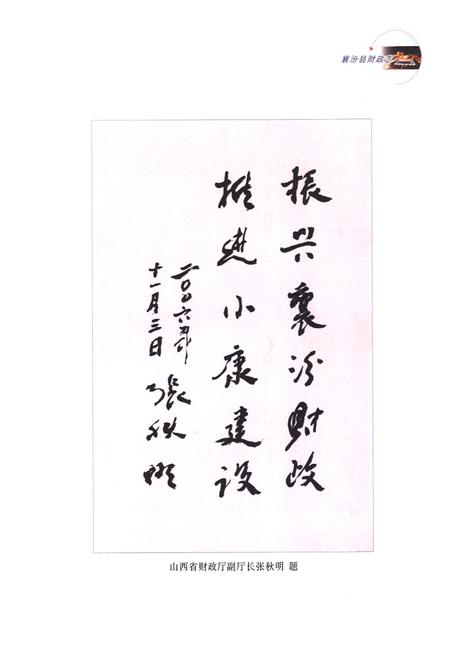 襄汾县财政志
振兴襄汾财政
推进小康建设
二〇〇六年
十一月三日
张秋明
山西省财政厅副厅长张秋明 题